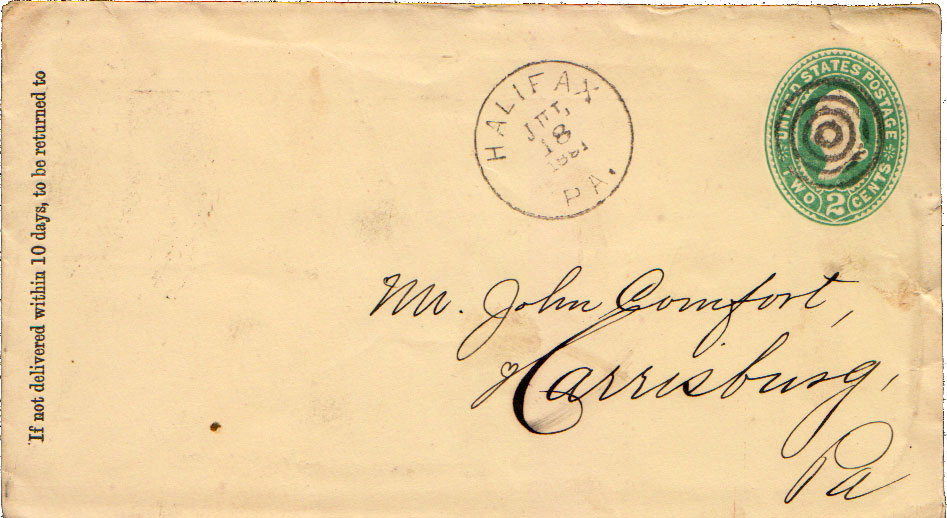 If not delivered within 10 days, to be returned to
HALIFAX
18
PA.
UNITED STATES POSTAGE
TWO 2 CENTS
Mr. John Comfort,
Harrisburg,
Pa